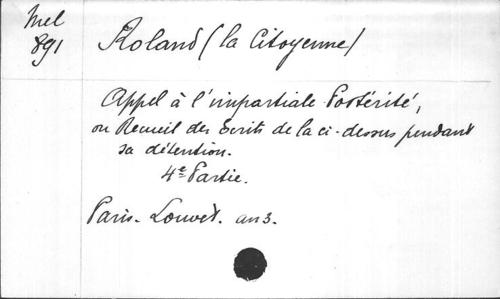 Mel
891
Roland (la Citoyenne)
Appel à l'impartiale Postérité,
ou Recueil des Ecrits de la ci-dessus pendant
sa détention.
4e Partie.
Paris. Louvet. an 3.